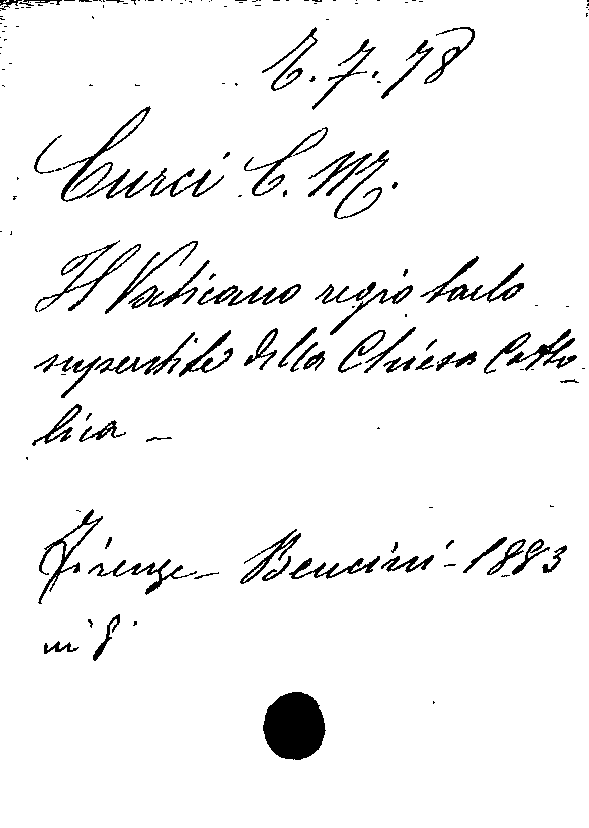 E. 7. 78
Curci C. M.
Il Vaticano regio tarlo
superstite della Chiesa Catto
lica -
Firenze - Bencini - 1883
in 8°